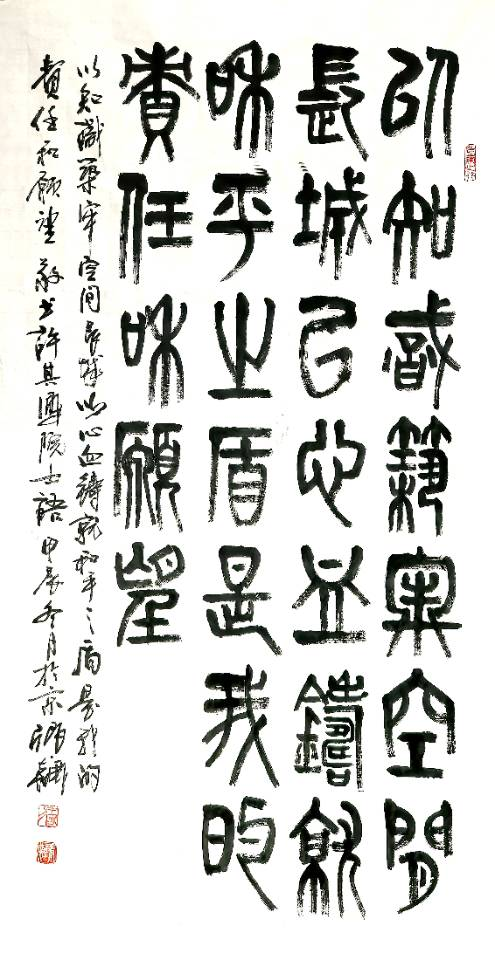 以知識築牢空間
長城以心血鑄就
和平之盾是我的
責任和願望
以知識築牢空間長城以心血鑄就和平之盾是我的
責任和願望 敬书許其鳳院士語 甲辰冬月於京